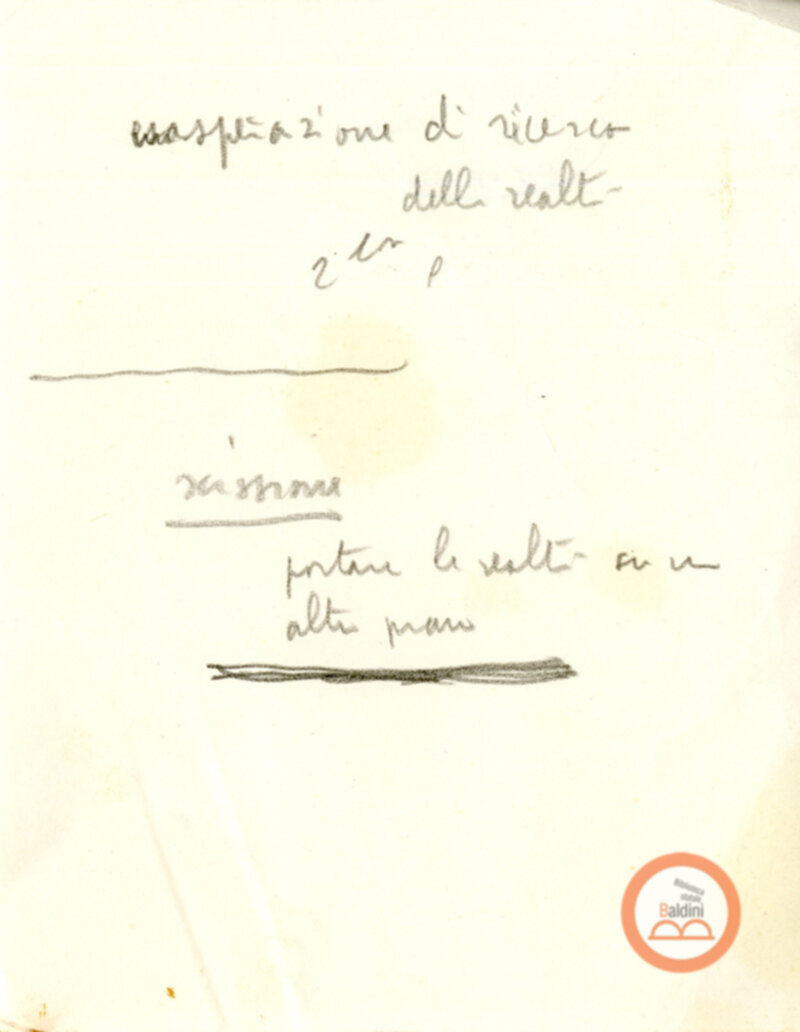 esasperazione di ricerca
della realtà
scissione
portare la realtà su un
altro piano
Biblioteca
statale
Baldini